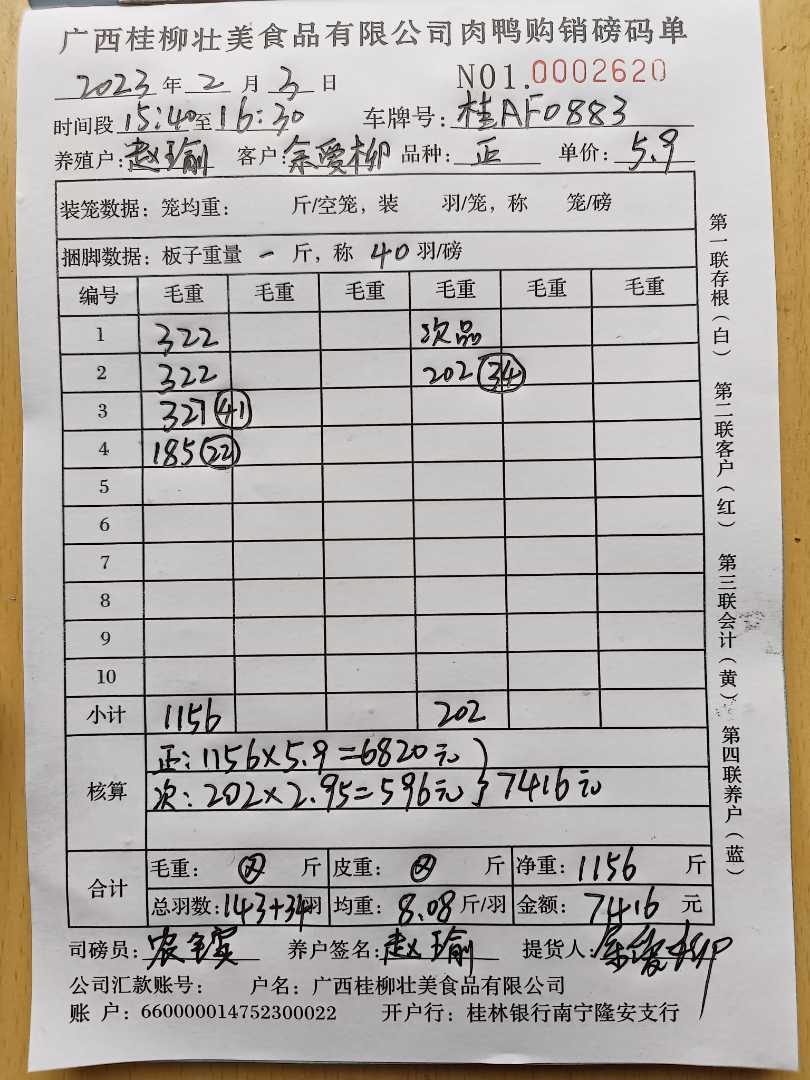 广西桂柳壮美食品有限公司肉鸭购销磅码单
2023 年 2 月 3 日 NO1.0002620
时间段 15:40 至 16:30 车牌号: 桂AF0883
养殖户: 赵瑜 客户: 余爱柳 品种: 正 单价: 5.9
装笼数据: 笼均重: 斤/空笼, 装 羽/笼, 称 笼/磅
捆脚数据: 板子重量 一 斤, 称 40 羽/磅
编号 毛重 毛重 毛重 毛重 毛重 毛重
1 322 次品
2 322 202 34
3 327 41
4 185 22
5
6
7
8
9
10
小计 1156 202
核算
正: 1156×5.9=6820元
次: 202×2.95=596元 } 7416元
合计
毛重: 斤 皮重: 斤 净重: 1156 斤
总羽数: 143+34 羽 均重: 8.08 斤/羽 金额: 7416 元
司磅员: 养户签名: 赵瑜 提货人: 余爱柳
公司汇款账号: 户名: 广西桂柳壮美食品有限公司
账 户: 660000014752300022 开户行: 桂林银行南宁隆安支行
第一联存根(白) 第二联客户(红) 第三联会计(黄) 第四联养户(蓝)